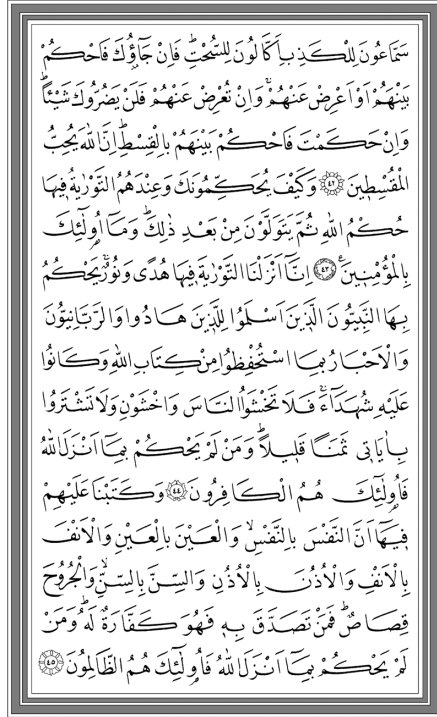 سَمَّاعُونَ لِلْكَذِبِ اَكَّالُونَ لِلسُّحْتِۜ فَاِنْ جَٓاؤُ۫كَ فَاحْكُمْ
بَيْنَهُمْ اَوْ اَعْرِضْ عَنْهُمْۚ وَاِنْ تُعْرِضْ عَنْهُمْ فَلَنْ يَضُرُّوكَ شَيْـٔاًۜ
وَاِنْ حَكَمْتَ فَاحْكُمْ بَيْنَهُمْ بِالْقِسْطِۜ اِنَّ اللّٰهَ يُحِبُّ
الْمُقْسِط۪ينَ ﴿٤٢﴾ وَكَيْفَ يُحَكِّمُونَكَ وَعِنْدَهُمُ التَّوْرٰيةُ ف۪يهَا
حُكْمُ اللّٰهِ ثُمَّ يَتَوَلَّوْنَ مِنْ بَعْدِ ذٰلِكَۜ وَمَٓا اُو۬لٰٓئِكَ
بِالْمُؤْمِن۪ينَ۟ ﴿٤٣﴾ اِنَّٓا اَنْزَلْنَا التَّوْرٰيةَ ف۪يهَا هُدًى وَنُورٌۚ يَحْكُمُ
بِهَا النَّبِيُّونَ الَّذ۪ينَ اَسْلَمُوا لِلَّذ۪ينَ هَادُوا وَالرَّبَّانِيُّونَ
وَالْاَحْبَارُ بِمَا اسْتُحْفِظُوا مِنْ كِتَابِ اللّٰهِ وَكَانُوا
عَلَيْهِ شُهَدَٓاءَۚ فَلَا تَخْشَوُا النَّاسَ وَاخْشَوْنِ وَلَا تَشْتَرُوا
بِاٰيَات۪ي ثَمَناً قَل۪يلاًۜ وَمَنْ لَمْ يَحْكُمْ بِمَٓا اَنْزَلَ اللّٰهُ
فَاُو۬لٰٓئِكَ هُمُ الْكَافِرُونَ ﴿٤٤﴾ وَكَتَبْنَا عَلَيْهِمْ
ف۪يهَٓا اَنَّ النَّفْسَ بِالنَّفْسِۙ وَالْعَيْنَ بِالْعَيْنِ وَالْاَنْفَ
بِالْاَنْفِ وَالْاُذُنَ بِالْاُذُنِ وَالسِّنَّ بِالسِّنِّۙ وَالْجُرُوحَ
قِصَاصٌۜ فَمَنْ تَصَدَّقَ بِه۪ فَهُوَ كَفَّارَةٌ لَهُۜ وَمَنْ
لَمْ يَحْكُمْ بِمَٓا اَنْزَلَ اللّٰهُ فَاُو۬لٰٓئِكَ هُمُ الظَّالِمُونَ ﴿٤٥﴾